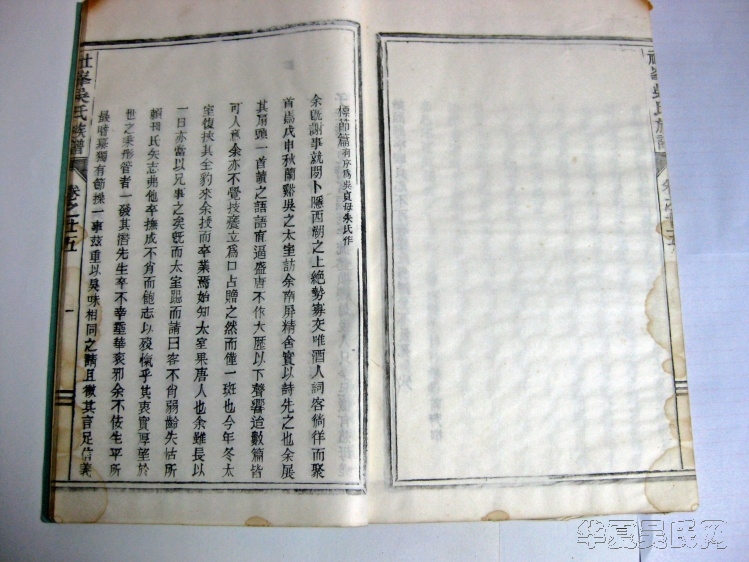 社峯吳氏族譜
卷之廿五
一
標節篇 有序爲吳貞母朱氏作
余旣謝事就閒卜隱西湖之上絶勢寡交唯酒人詞客徜徉而聚
首焉戊申秋蘭谿吳之太室訪余南屏精舍實以詩先之也余展
其扇頭一首讀之語語直逼盛唐不作大歷以下聲響迨數篇皆
可人意余亦不覺技癢立爲口占贈之然而僅一斑也今年冬太
室復挾其全豹來余授而卒業焉始知太室果唐人也余雖長以
一日亦當以兄事之矣旣而太室跽而請曰客不肖弱齡失怙所
賴母氏矢志弗他卒撫成不肖而
志以
乎其衷實厚望於
世之秉彤管者一
其潛先生卒不幸
華袞邪余不佞生平所
最嗜慕獨有節操一事茲重以臭味相同之請且徵其言足信義
華夏吳氏网